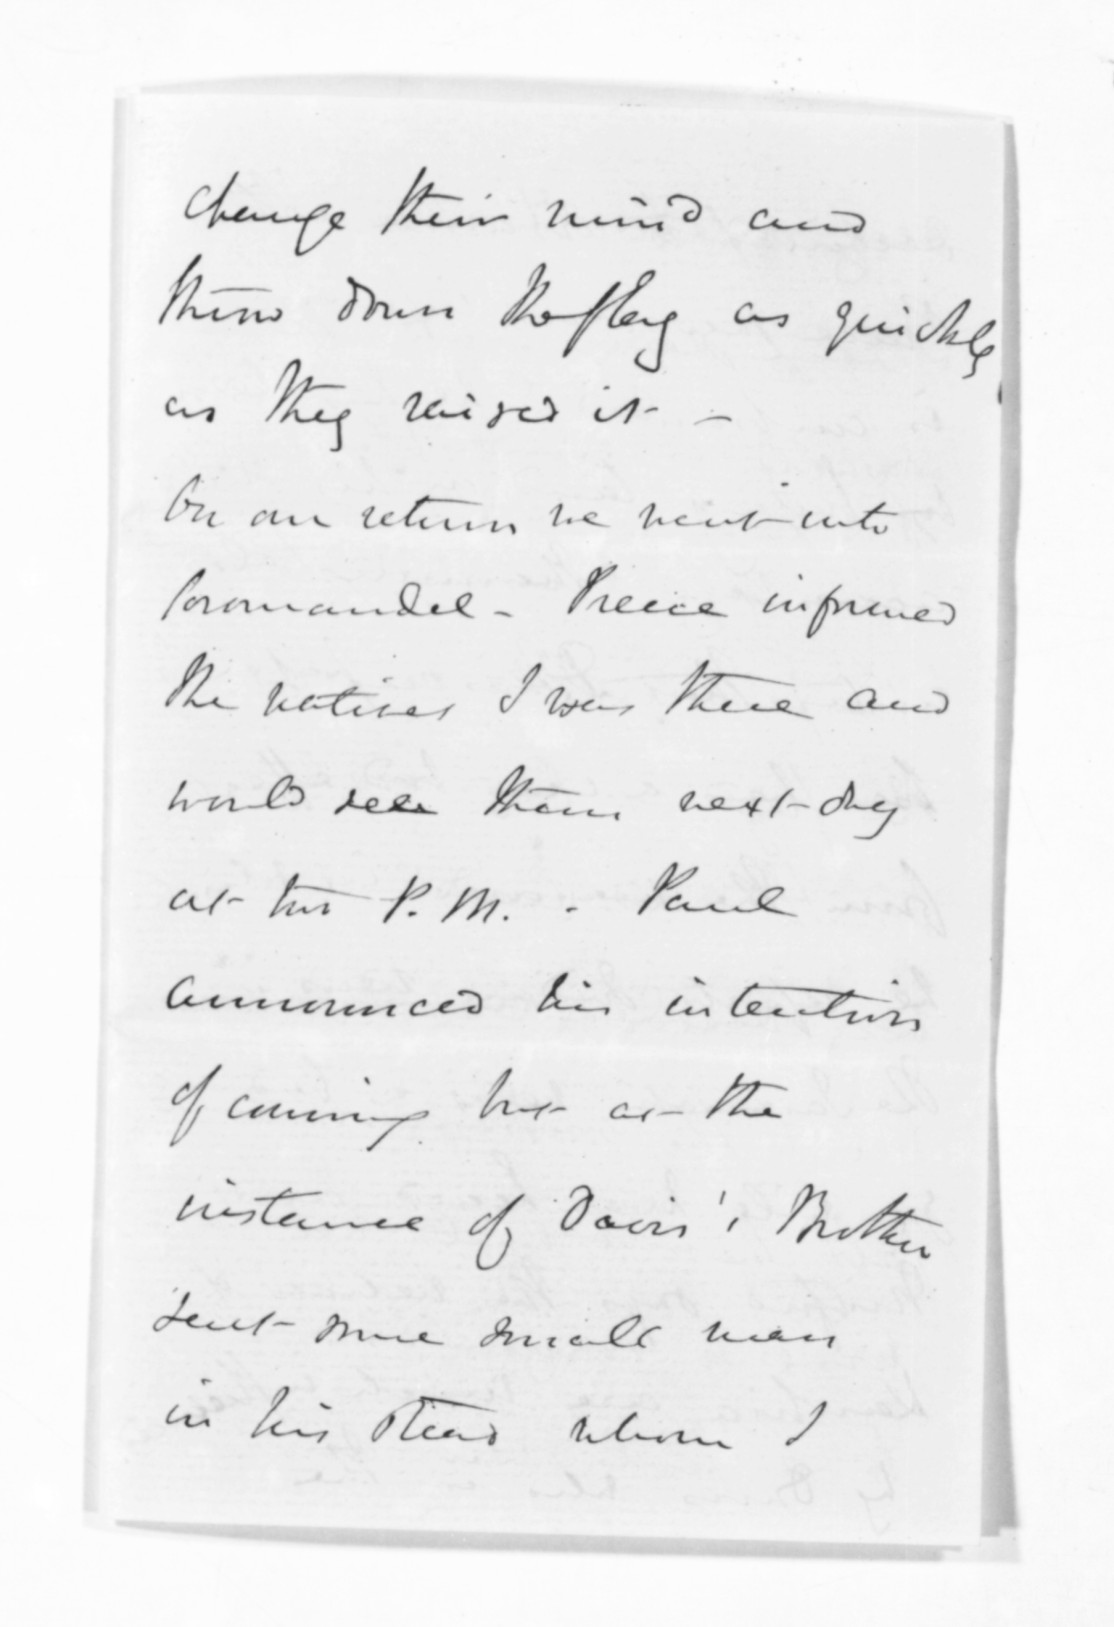 change their mind and
throw down the flag as quickly
as they raised it -
On our return we went into
Coromandel - Preece informed
the natives I was there and
would see them next day
at two P.M. - Paul
announced his intention
of coming but at the
instance of Davis's Brother
sent some small man
in his stead whom I